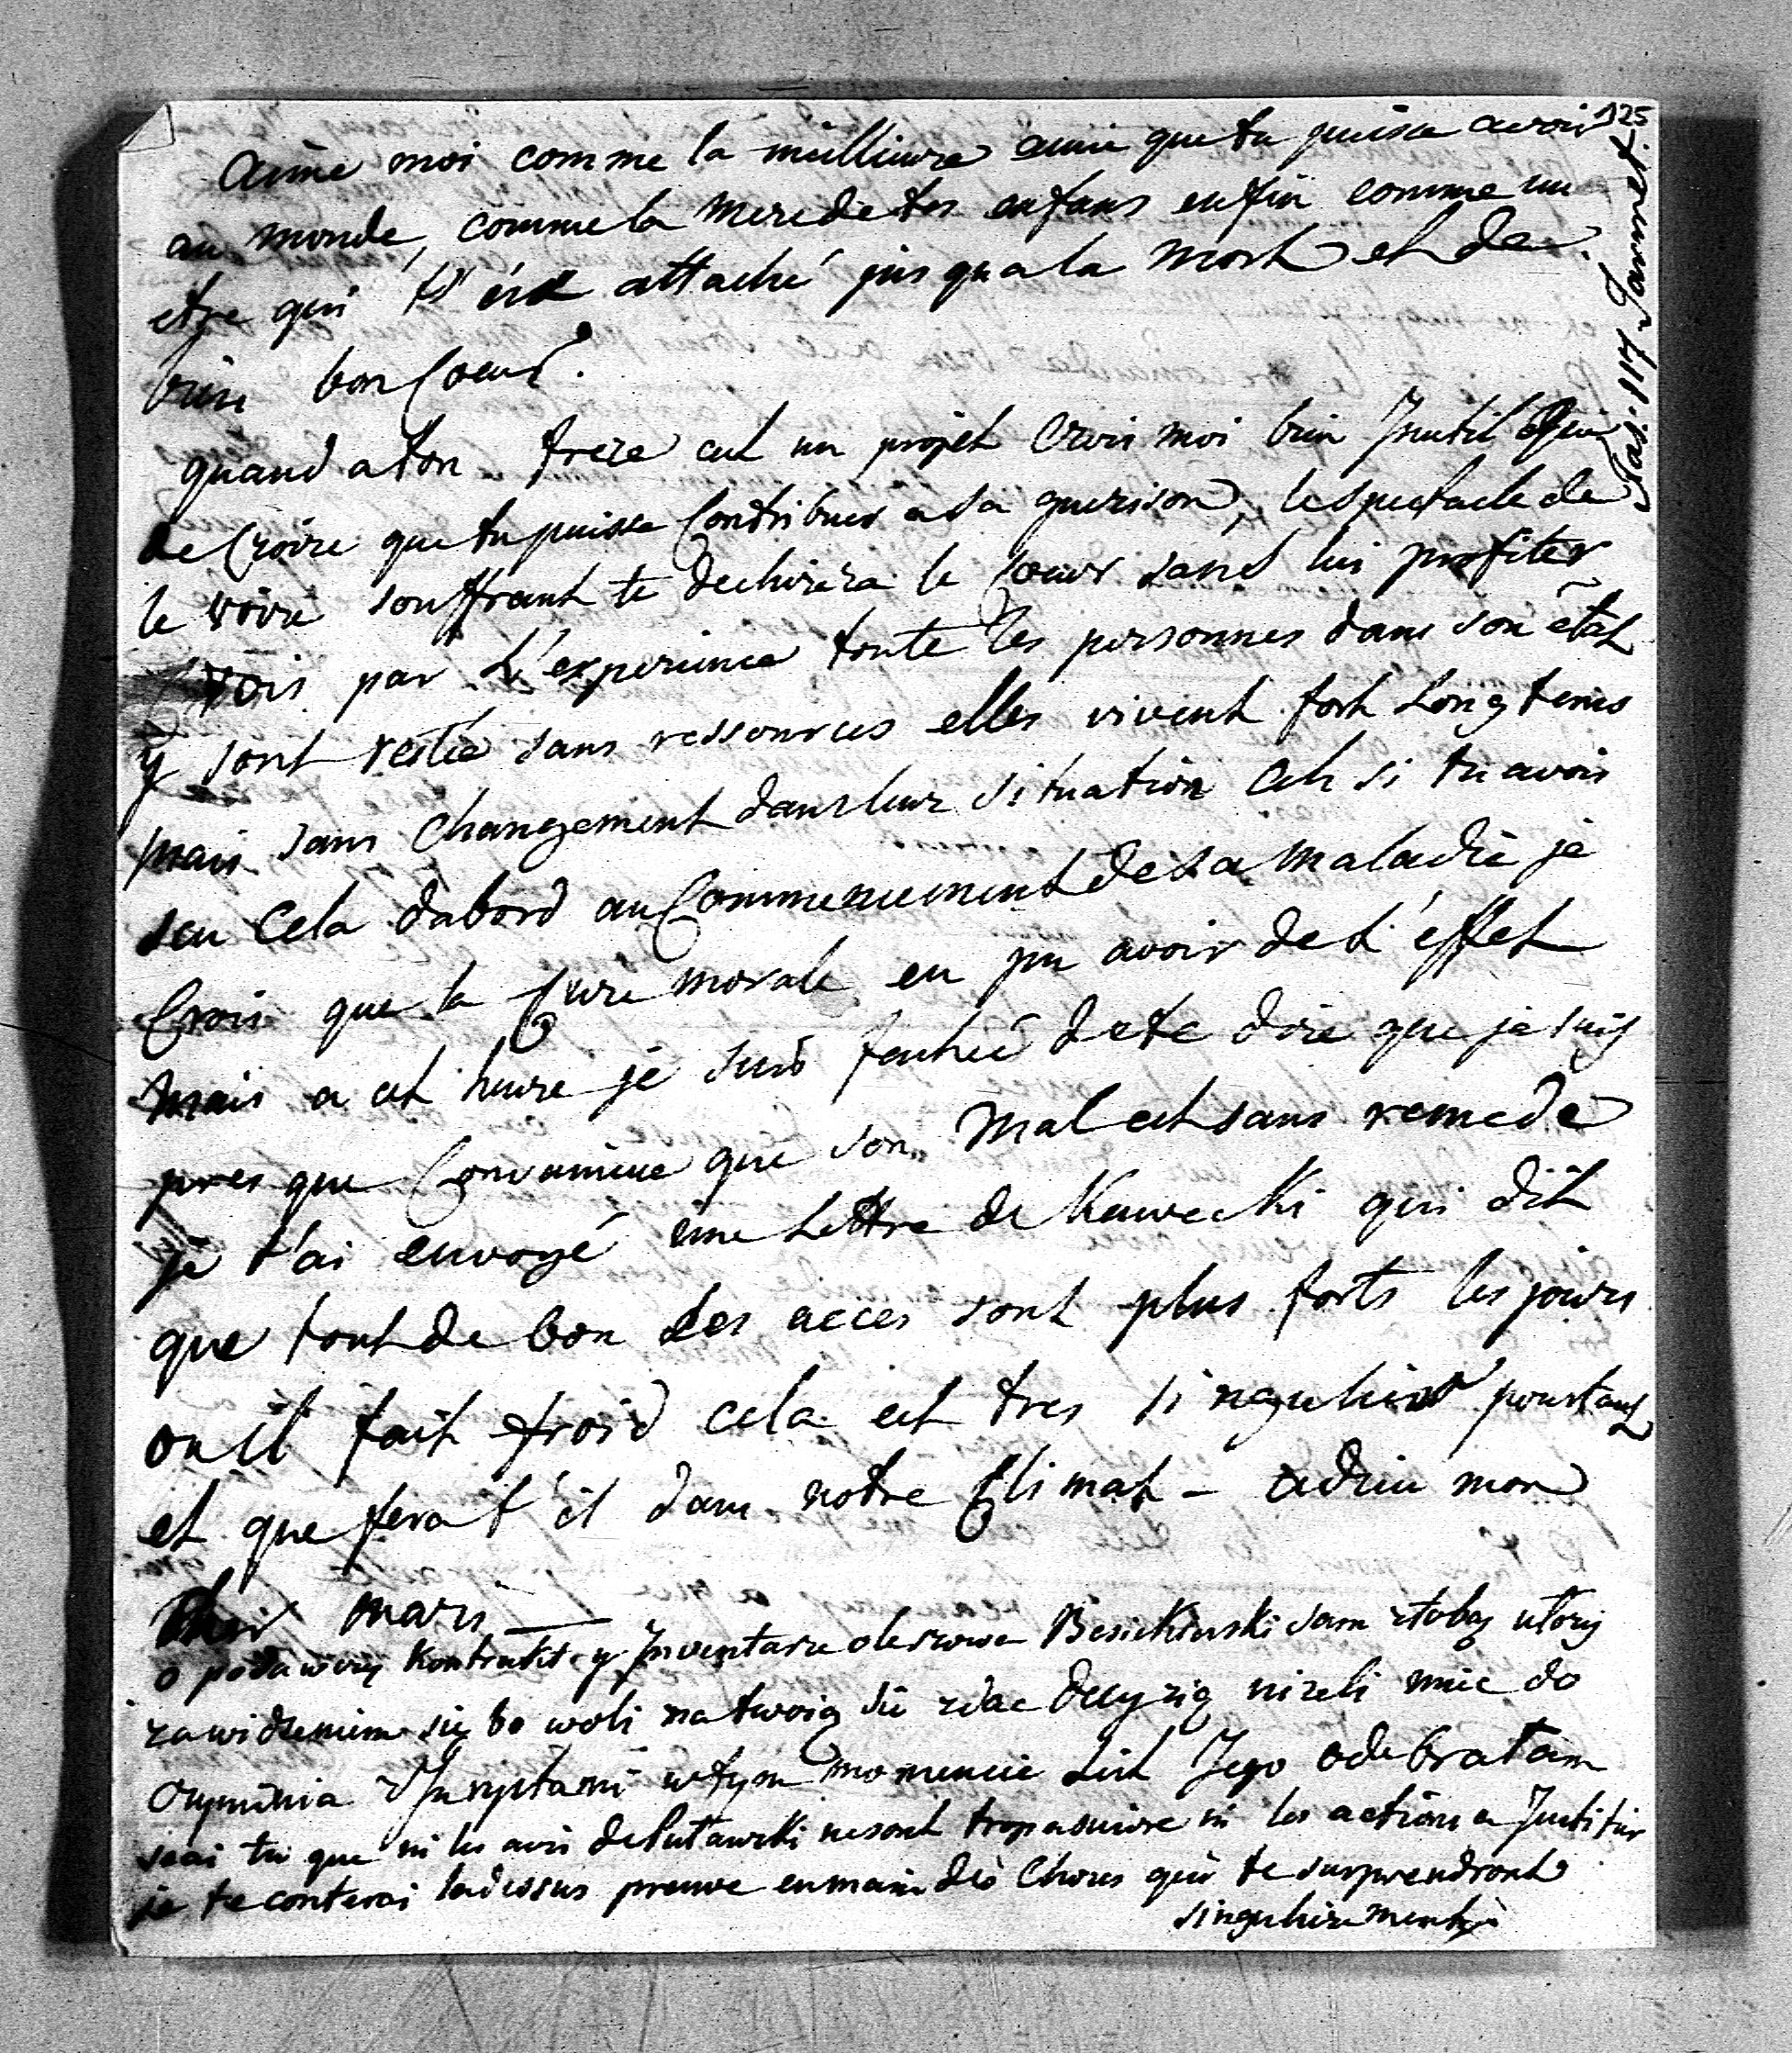 125
aime moi comme la meillieure amie que tu puisse avoir
au monde, comme la mere de tes enfans enfin comme un
etre qui t'est attaché jus qu a la mort et de
bien bon Coeur.
quand a ton frere cet un projet Crois moi bien Inutil que
de Croire que tu puisse Contribuer a sa guerison, le spectacle de
le voire souffrant te dechirera le Coeur sans lui profiter
vois par L'experience toute les personnes dans son état
y sont restée sans ressources elles vivent fort Longtems
mais sans Changement dans leur situation ah si tu avois
seu Cela dabord au Commencement de sa maladie je
Crois que la Cure morale eu pu avoir de L'éffet
mais a cet heure je suis fachée de te dire que je suis
pres que Convaincue que son mal est sans remede
je t'ai envoyé une Lettre de Kawecki qui dit
que tout de bon les acces sont plus forts les jours
ou il fait froid cela est tres singulier pourtant
et que fera t'il dans notre Climat - adieu mon
cher mari —
o podawczy Kontrakt y Inventarze olerzowe Besiekierski sam ztobą utozy
za widzeniem się bo woli na twoią sie zdac decyzią nizeli mnie do
czynienia w tym momencie List Jego odebratam
scai tu que ni les avis de Putawski ne sont trop a suivre ni les actions a Justifier
je te conterai ladessus preuve en main des Choses qui te surprendront
singulierement